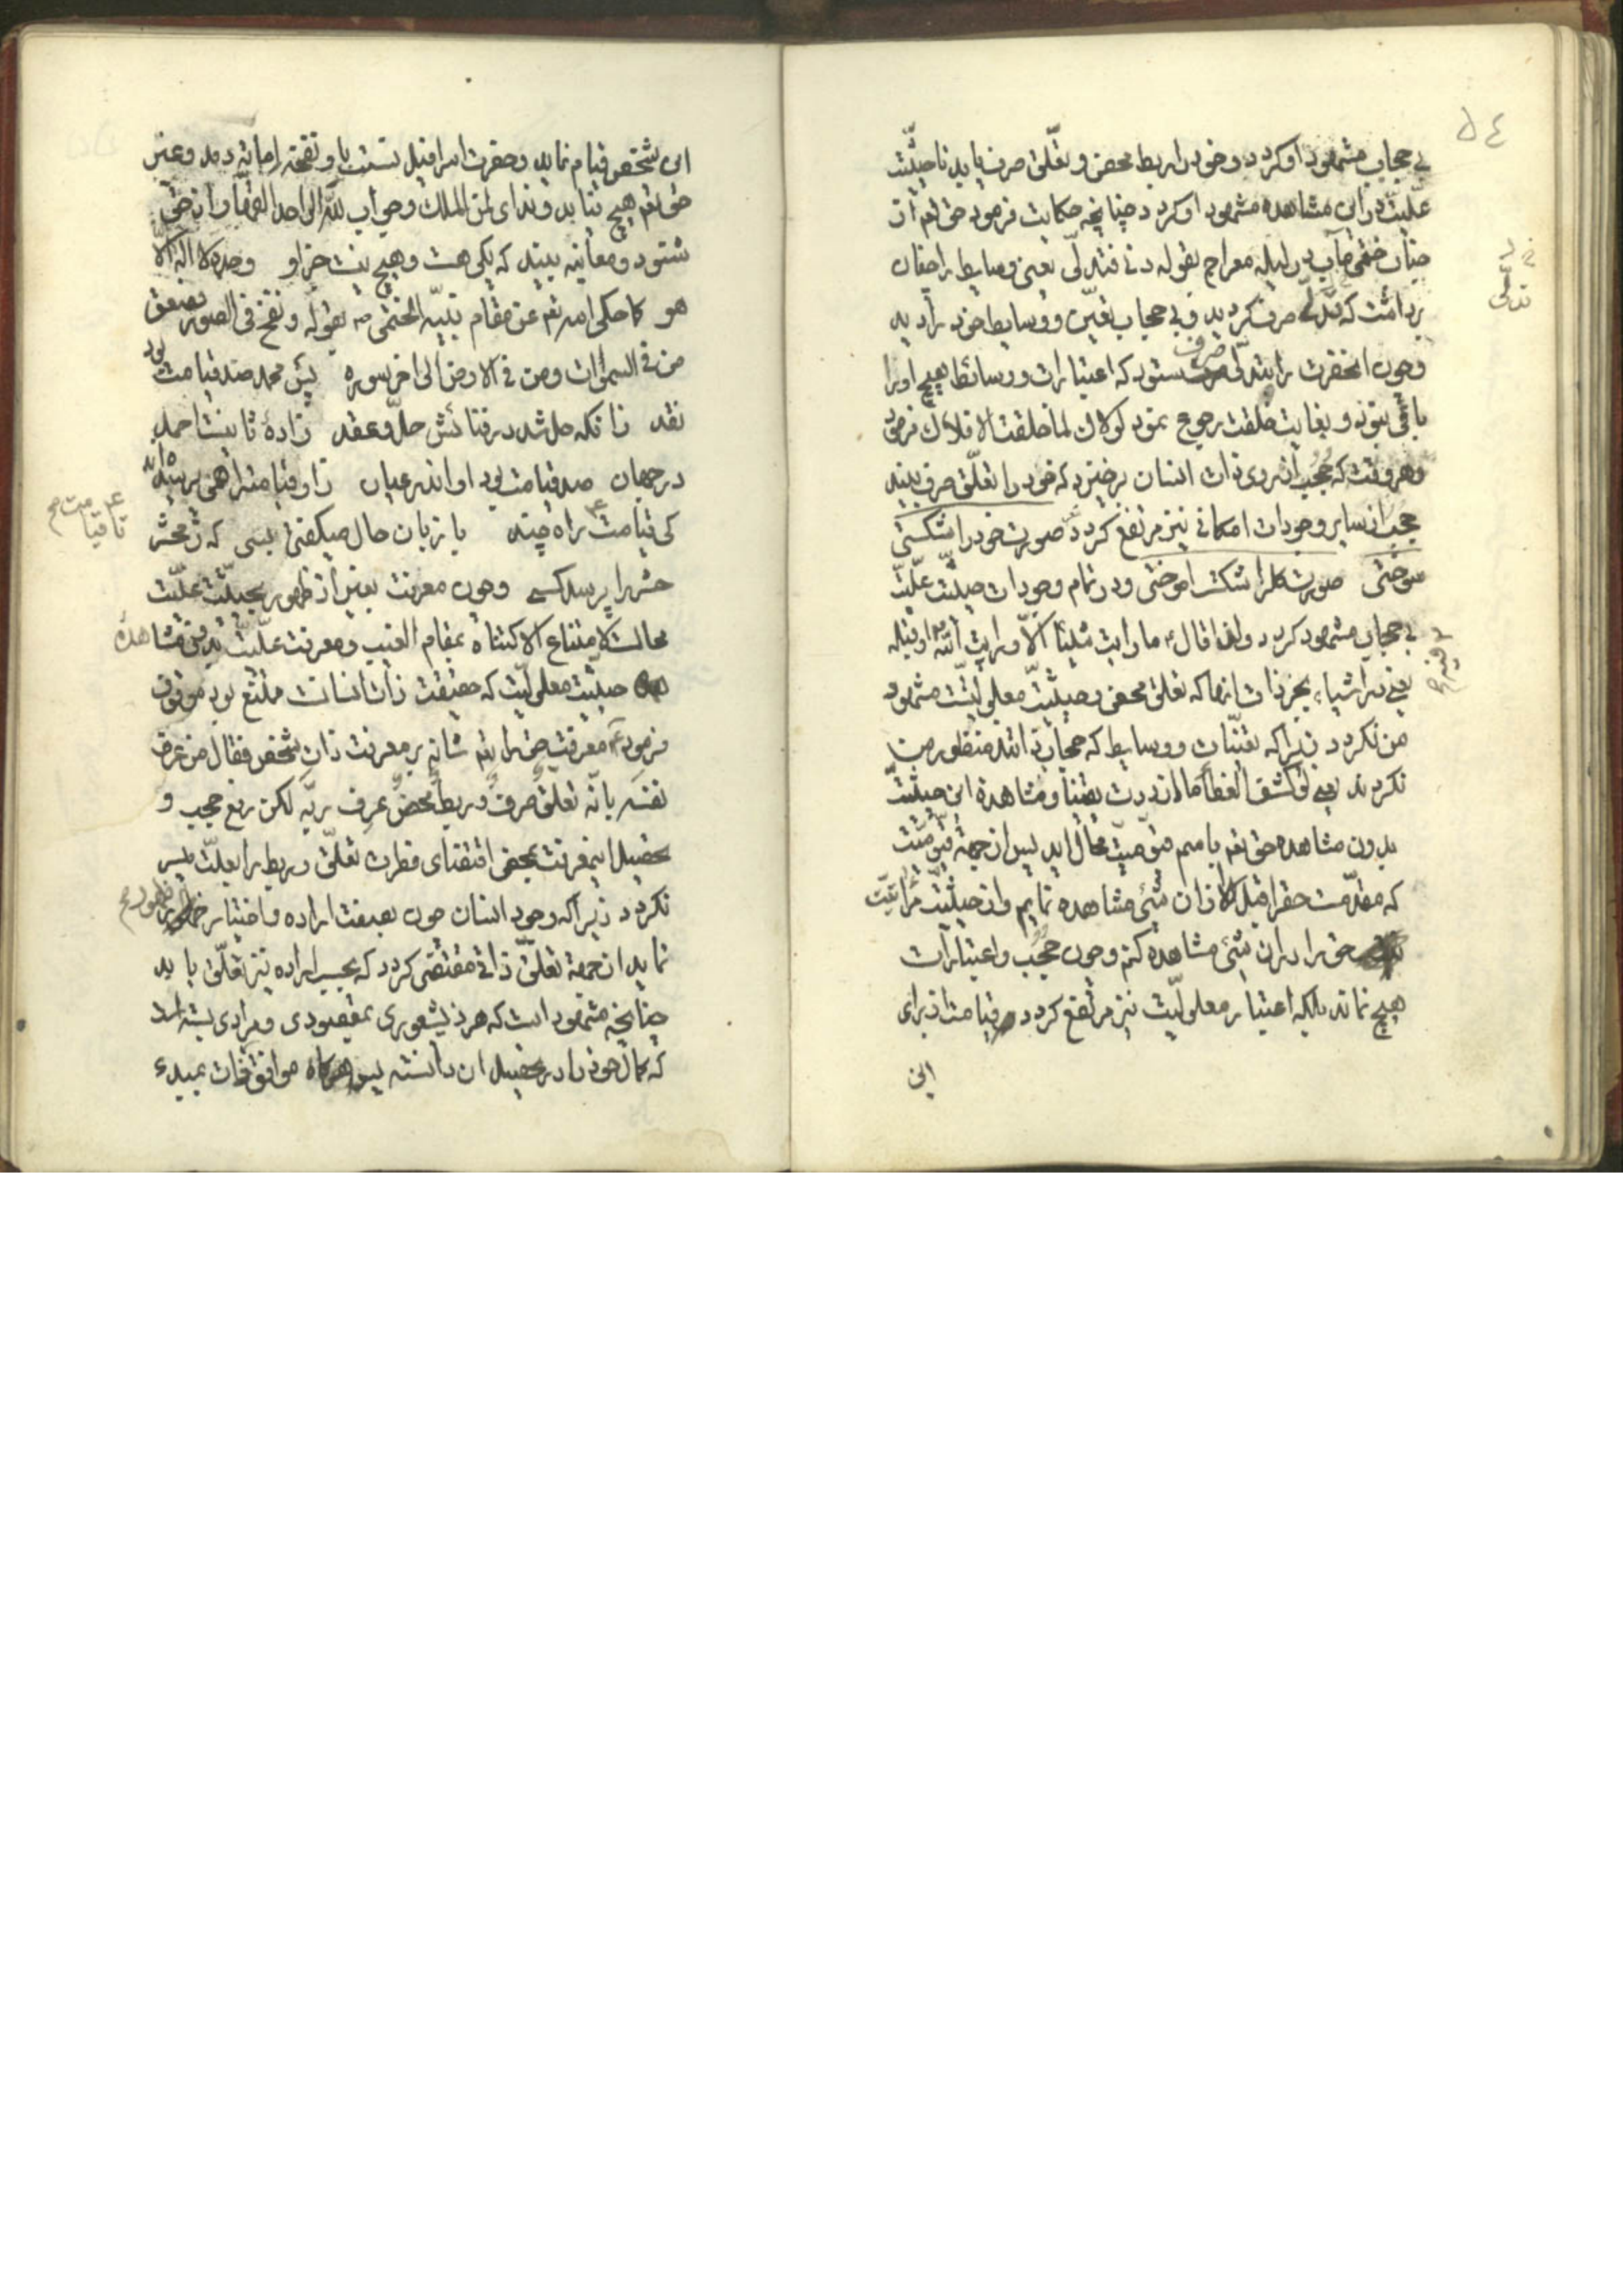 ٥٤
بی حجاب مشهود او کردد و خود را ربط محض و تعلّق صرف یابد تا حیثیّت
علّیّت در این مشاهده مشهود او کردد چنانچه حکایت فرمود حق تعم از
جناب ختمی مآب در لیله معراج بقوله دنی فتدلّی یعنی وسایط را چنان
برداشت که تدلّی صرف کردید و بی حجاب تعیّن و وسایط خود را دید
و چون آنحضرت را بتدلّی صرف ستود که اعتبارات و وسائط هیچ او را
باقی نبود و بغایت خلقت رجوع نمود لولاک لما خلقت الافلاک فرمود
و هر وقت که حجب از روی ذات انسان برخیزد که خود را تعلّق صرف بیند
حجب از سایر وجودات امکانی نیز مرتفع کردد صورت خود را شکستی
سوختی صورت کل را شکست اموختی و در تمام وجودات حیثیّت علّیّت
بی حجاب مشهود کردد ولذا قال ع ما رایت شیئا الّا و رایت الله
یعنی در اشیاء بجز ذات انها که تعلّق محض و حیثیّت معلولیّت مشهود
من نکردد زیرا که تعیّنات و وسایط که حجاب ذاتند منظور من
نکردند یعنی لو کشف الغطاء ما ازددت یقینا و مشاهده این حیثیّت
بدون مشاهده حق تعم باسم قیّومیّت محال اید پس از جهة قیّومیّت
که مقدّمست حق را قبل از ان شیء مشاهده نمایم و از حیثیّت مراتیّت
حق را در ان شیء مشاهده کنم و چون حجب و اعتبارات
هیچ نماند بلکه اعتبار معلولیّت نیز مرتفع کردد قیامت از برای
این
این شخص قیام نماید و حضرت اسرافیل نسبت باو نفخه اماته دمد و غیر
حق تعم هیچ نیابد و ندای لمن الملک و جواب لله الواحد القهّار از حق
شنود و معاینه بیند که یکی هست و هیچ نیست جز او وحده لا اله الّا
هو کما حکی الله تعم عن مقام نبیّه الختمی ص بقوله و نفخ فی الصور فصعق
من فی السموات و من فی الارض الی اخر سوره پس محمد صد قیامت بود
نقد زانکه حل شد در فنائش حلّ و عقد زادهٔ ثانیست احمد
در جهان صد قیامت بود او اندر عیان زو قیامت را همی پرسیده اند
کی قیامت تا قیامت راه چند با زبان حال میکفتی بسی که ز محشر
حشر را پرسد کسی و چون معرفت بعین از ظهور بحیثیّت علّیّت
محالست لامتناع الاکتناه بمقام الغیب و معرفت علّیّت بدون مشاهدهٔ
حیثیّت معلولیّت که حقیقت ذات انسانست ممتنع بود موقوف
فرمود ع معرفت حق را تعم شانه بر معرفت ذات شخص فقال من عرف
نفسه بانّه تعلّق صرف و ربط محض عرف ربّه لکن رفع حجب و
تحصیل اینمعرفت بمحض اقتضای فطرت تعلّق و ربط را بعلّت میسر
نکردد زیرا که وجود انسان چون بصفت اراده و اختیار ظهور
نماید از جهة تعلّق ذاتی مقتضی کردد که بحسب اراده نیز تعلّق یابد
چنانچه مشهود است که هر ذیشعوری بمقصودی و مرادی بسته است
که کمال خود را در تحصیل ان دانسته پس هرکاه موافق ذات بمبدء